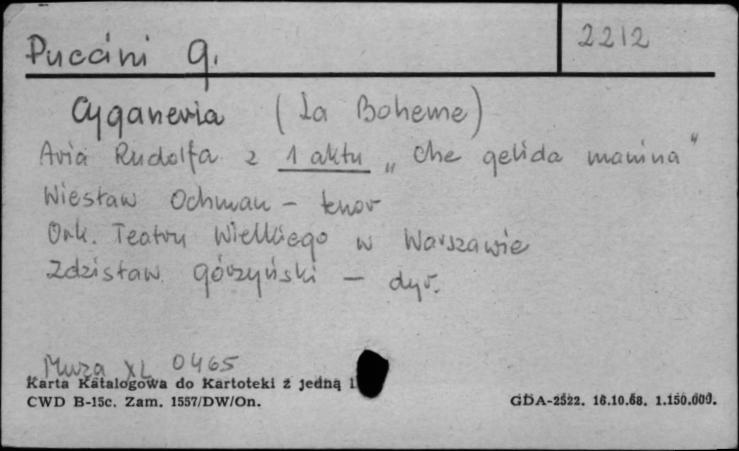 Puccini G.
2212
Cyganeria (La Boheme)
Aria Rudolfa z 1 aktu „Che gelida manina"
Wiesław Ochman – tenor
Ork. Teatru Wielkiego w Warszawie
Zdzisław Górzyński – dyr.
Muza XL 0465
Karta Katalogowa do Kartoteki z jedną
CWD B-15c. Zam. 1557/DW/On.
GDA-2522. 16.10.68. 1.150.000.